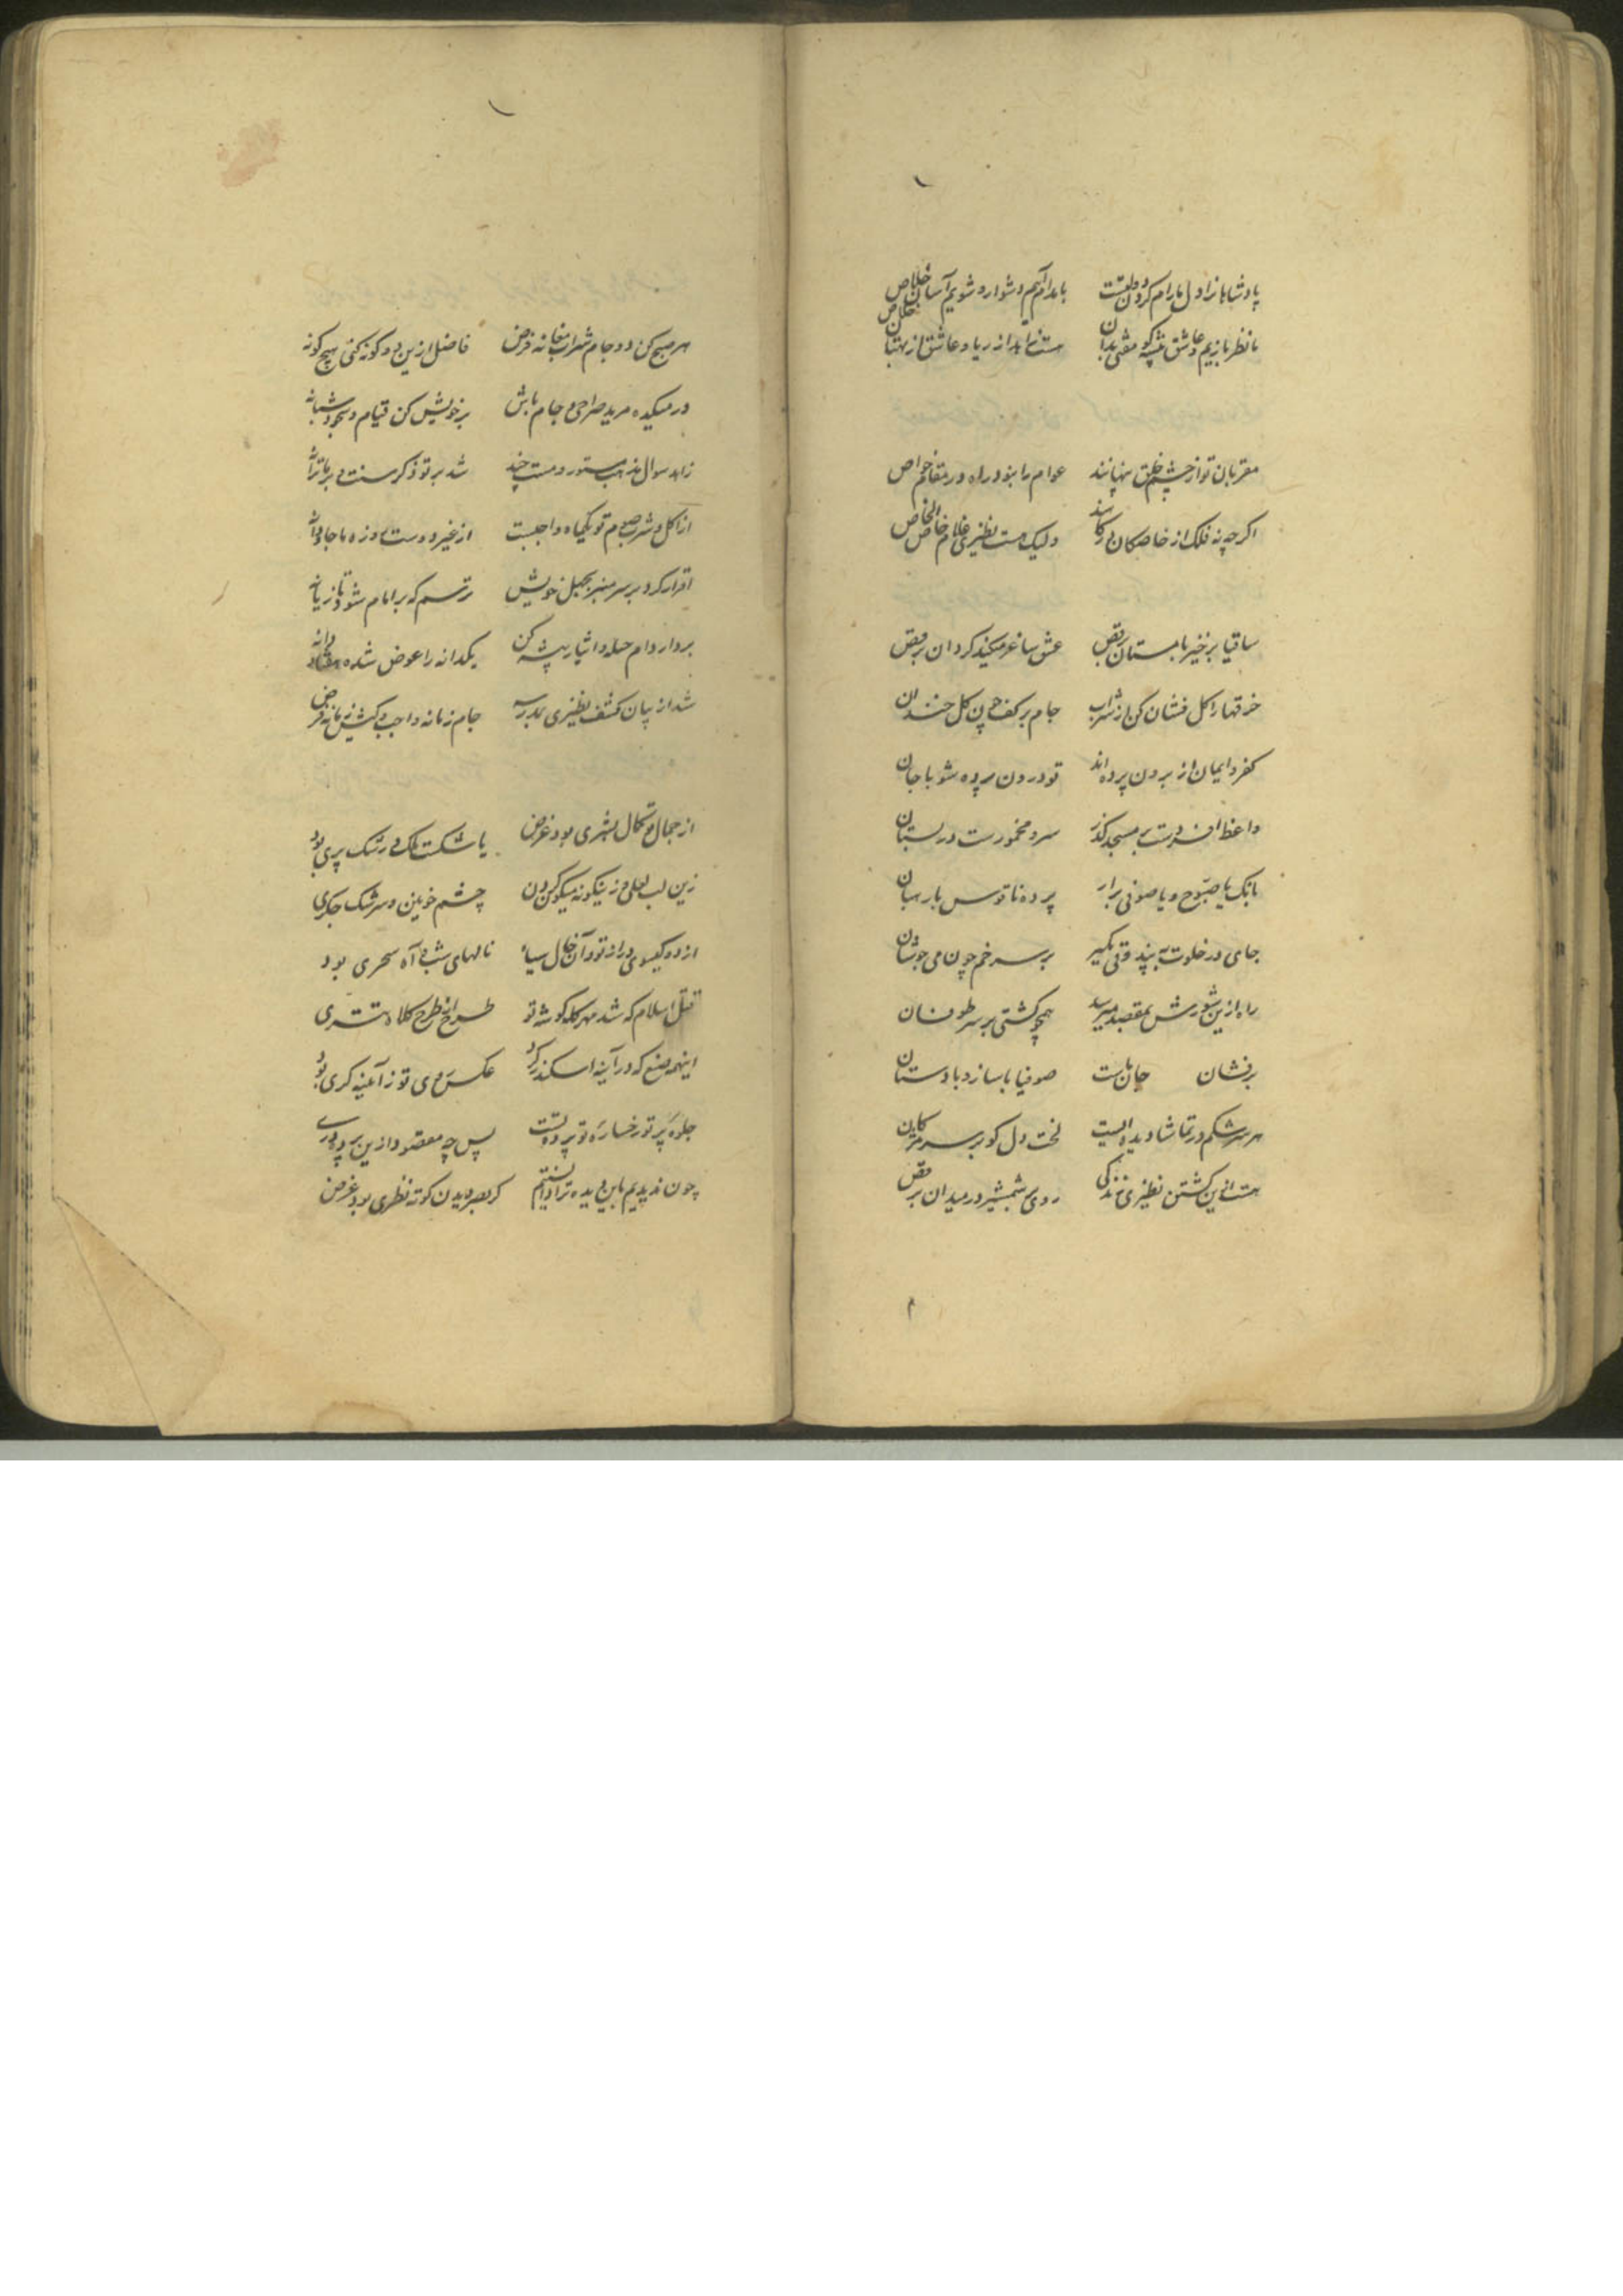 پادشاهانرا دل ما رام کردن دولتست    با بدام آییم دشوار و شویم آسان خلاص
ما نظر بازیم و عاشق پیشه کو مفتی بدان    مست نتابد از ریا و عاشق از بهتان خلاص
مقربان تو از چشم خلق پنهانند    عوام را نبود راه در مقام خواص
اکرچه نه فلک از خاصکان درکاهند    ولیک هست نظیری غلام خاص الخاص
ساقیا برخیز با مستان برقص    عشق ساغر میکند کردان برقص
خرقها را کل فشان کن از شراب    جام بر کف چون کل خندان
کفر و ایمان از برون پرده اند    تو درون پرده شو با جان
واعظ افسردست بر مسجد کذر    سرو مخمورست در بستان
بانک یا صبوح و یا صوفی برار    پرده ناقوس با رهبان
جای در خلوت نه پند وقتی بکیر    بر سر خم چون می جوشان
راه ازین شورش بمقصد میرسد    همچو کشتی بر سر طوفان
برفشان جان باست    صوفیا با ساز و با دستان
هر سرشکم در تماشا دیده ایست    لخت دل کو بر سر مژکان
هست ازین کشتن نظیری زندکی    روی شمشیر در میدان برقص
هر صبح کن دو جام شراب مغانه فرض    فاضل ازین دو کونه کنی هیچ کونه
در میکده مرید صراحی و جام باش    بر خویش کن قیام و سجود شبانه
زاهد سوال مذهب مستور و مست چند    شد بر تو ذکر سنت و بر ما ترانه
از اکل و شرب صوم تو یکماه واجبست    از غیر دوست روزه ما جاودانه
اقرار کرد بر سر منبر بجهل خویش    ترسم که بر امام شود تازیانه
بردار دام حیله و ایثار پیشه کن    یکدانه را عوض شده هفتاد دانه
شد از بیان کشف نظیری بمدرسه    جام زمانه واجب و کشی زمانه فرض
از جمال تو کمال بشری بود غرض    یا شکست ملک و رشک پری بود
زین لب لعلی و زینکونه میکون کردن    چشم خونین و سرشک جکری
از دو کیسوی دراز تو و آن خال سیاه    نالهای شب و آه سحری بود
قتل اسلام که شد مهر کله کوشه تو    طرح از طرح کلاه تتری
اینهمه صنع که در آینه اسکندر کرد    عکس روی تو ز آیینه کری بود
جلوه پرتو رخساره تو پرده تست    پس چه مقصود ازین پرده دری
چون ندیدیم باین دیده ترا دانستیم    کز بصر دیدن کوته نظری بود غرض